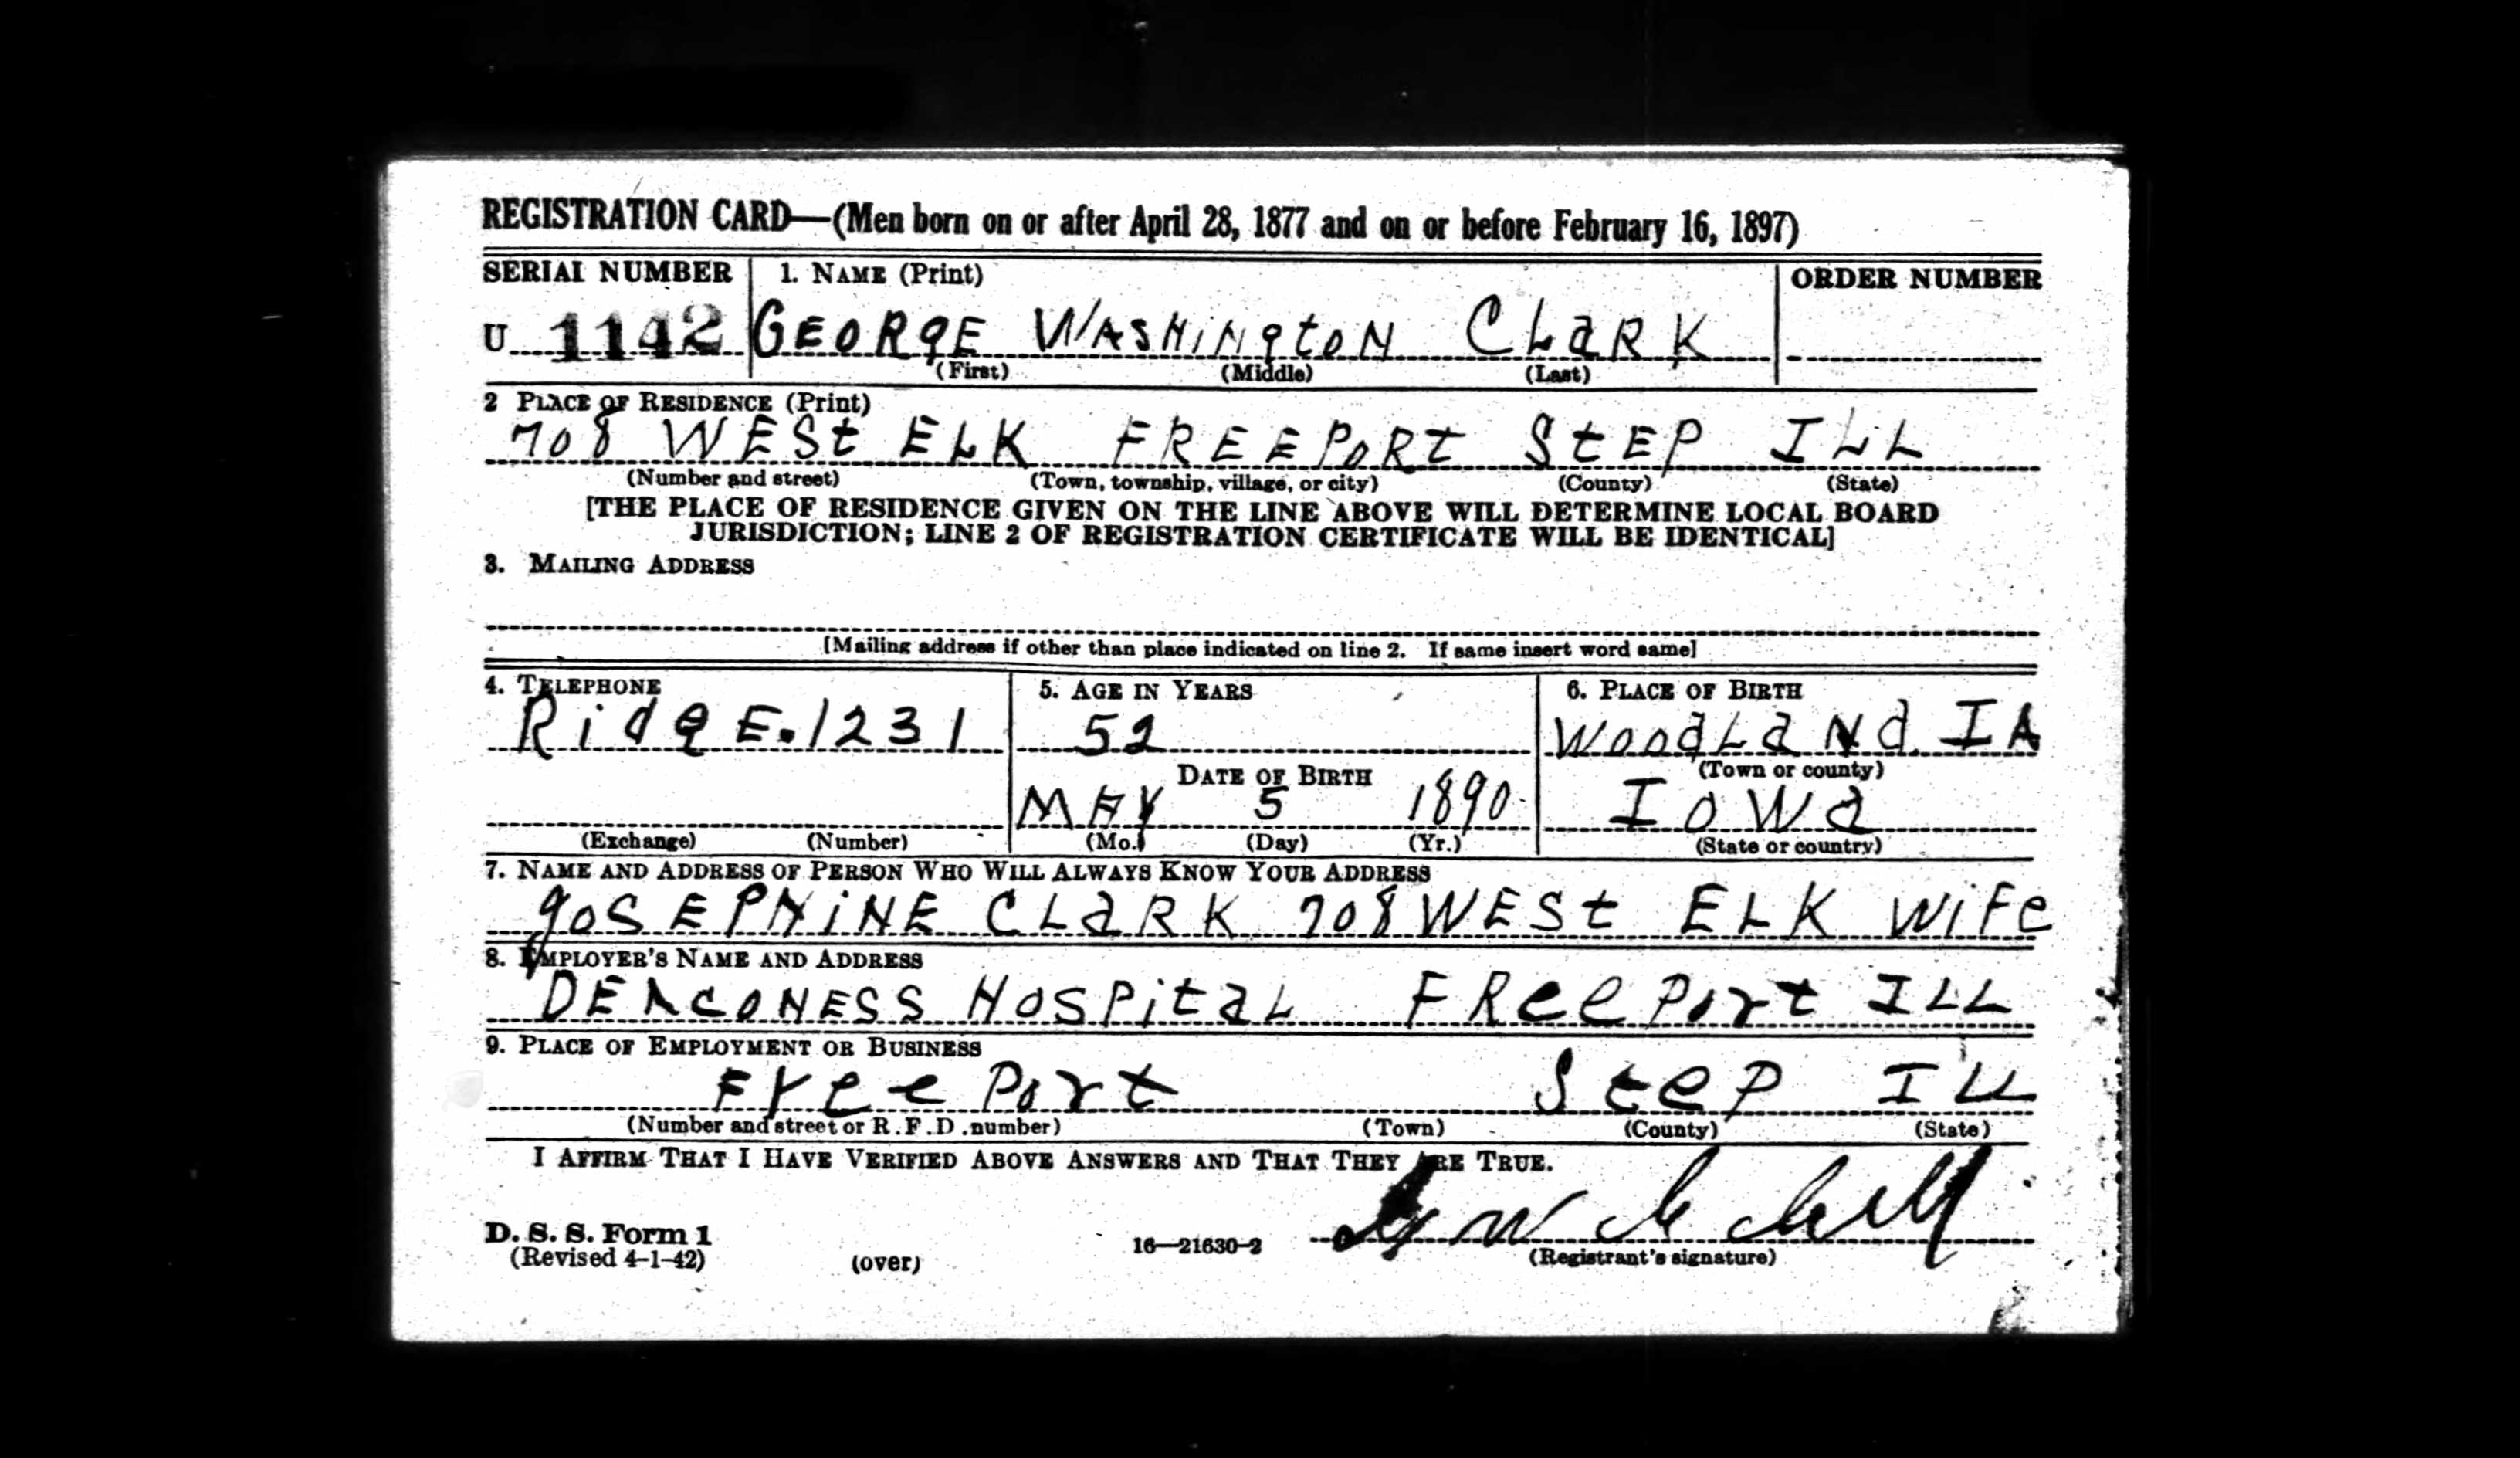 REGISTRATION CARD—(Men born on or after April 28, 1877 and on or before February 16, 1897)
SERIAL NUMBER 1. NAME (Print) ORDER NUMBER
U 1142 GEORGE WASHINGTON CLARK
(First) (Middle) (Last)
2 PLACE OF RESIDENCE (Print)
708 WEST ELK FREEPORT STEP ILL
(Number and street) (Town, township, village, or city) (County) (State)
[THE PLACE OF RESIDENCE GIVEN ON THE LINE ABOVE WILL DETERMINE LOCAL BOARD
JURISDICTION; LINE 2 OF REGISTRATION CERTIFICATE WILL BE IDENTICAL]
3. MAILING ADDRESS
[Mailing address if other than place indicated on line 2. If same insert word same]
4. TELEPHONE 5. AGE IN YEARS 6. PLACE OF BIRTH
RidgE.1231 52 WoodLaNd. IA
DATE OF BIRTH (Town or county)
MAY 5 1890 IOWa
(Exchange) (Number) (Mo.) (Day) (Yr.) (State or country)
7. NAME AND ADDRESS OF PERSON WHO WILL ALWAYS KNOW YOUR ADDRESS
JOSEPHINE CLARK 708 WEST ELK WiFe
8. EMPLOYER'S NAME AND ADDRESS
DEACONESS HOSPitaL FReePort ILL
9. PLACE OF EMPLOYMENT OR BUSINESS
Free Port SteP ILL
(Number and street or R.F.D. number) (Town) (County) (State)
I AFFIRM THAT I HAVE VERIFIED ABOVE ANSWERS AND THAT THEY ARE TRUE.
D. S. S. Form 1
(Revised 4-1-42) (over) 16—21630-2 (Registrant's signature)